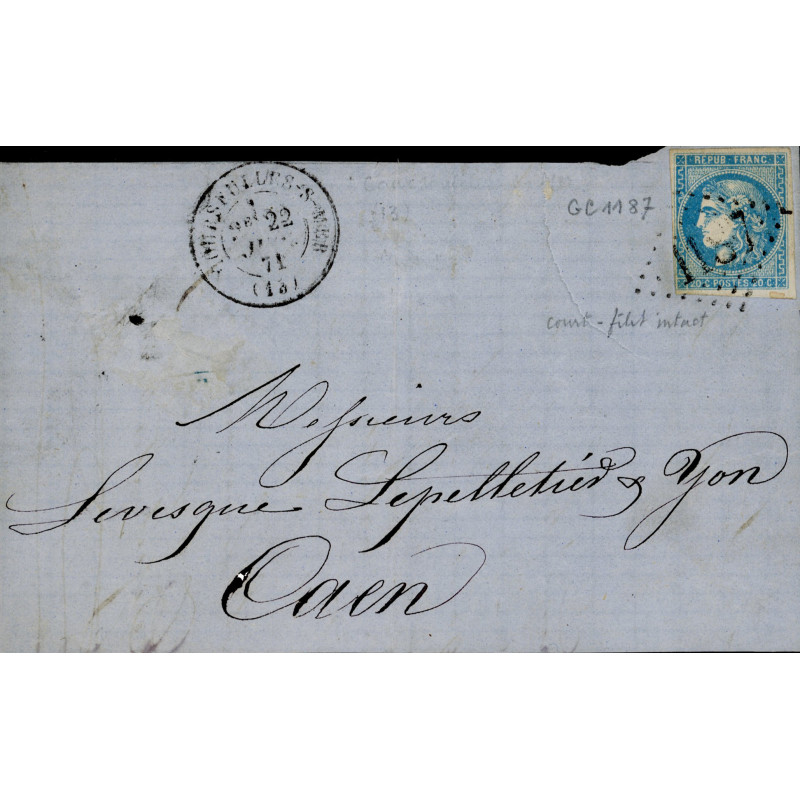 COURSEULLES-S-MER
22
71
(13)
GC 1187
REPUB·FRANC·
1187
20 C POSTES 20 C
court - filet intact
Messieurs
Levesque Lepelletier & Yon
Caen